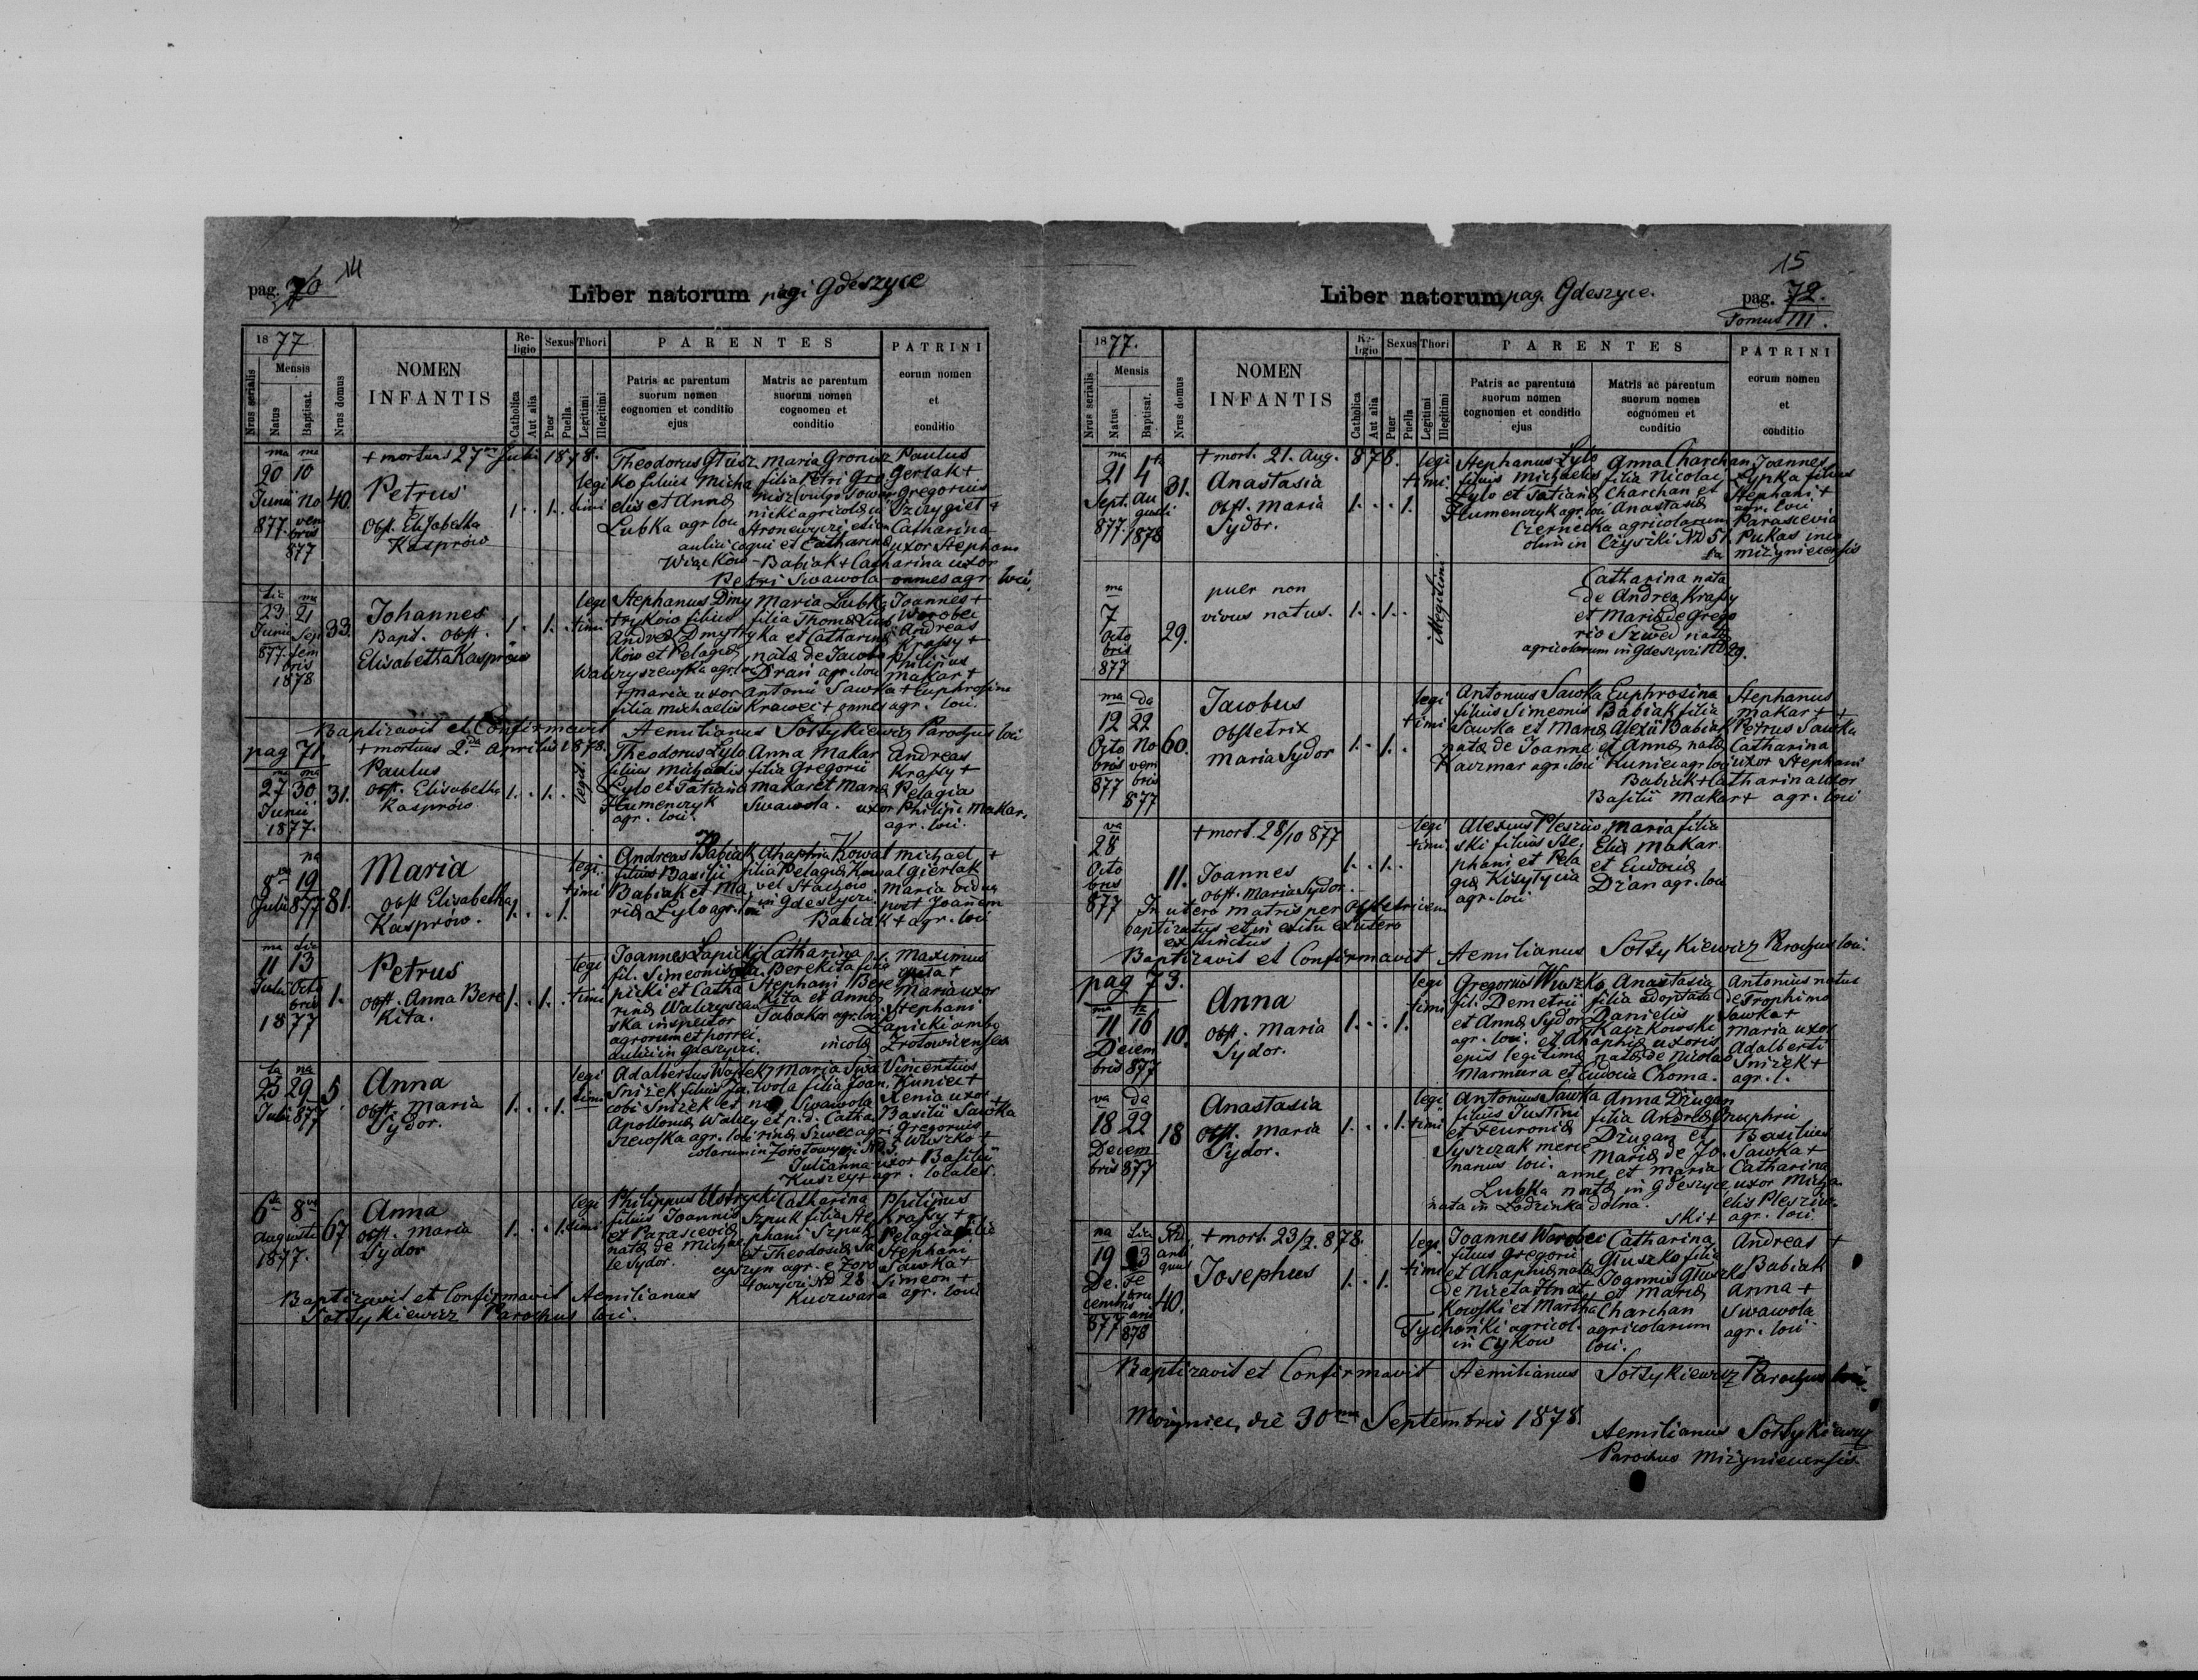 14
pag. 70
Liber natorum pagi Gdeszyce
1877
Mensis
Nrus serialis
Natus
Baptisat.
Nrus domus
NOMEN
INFANTIS
Re-
ligio
Catholica
Aut alia
Sexus
Puer
Puella
Thori
Legitimi
Illegitimi
PARENTES
Patris ac parentum
suorum nomen
cognomen et conditio
ejus
Matris ac parentum
suorum nomen
cognomen et
conditio
PATRINI
eorum nomen
et
conditio
20 Junii 877
10 Novembris 877
40.
+ mortuus 27 Julii 1878.
Petrus
Obst. Elisabetha
Kasprów
1. . 1. legitimi
Theodorus Głusz
ko filius Micha
elis et Annæ
Lubka agr. loci
Maria Gronisz
filia Petri Gro
nisz
et Catharina
Wiącków
Paulus
Gerlak +
Gregorius
Catharina
uxor Stephani
Babiak + Catharina uxor
Petri Swawola omnes agr. loci
23 Junii 877
21 Septembris 1878
33.
Johannes
Bapt. obst.
Elisabetha Kasprów
1. . 1. legitimi
Stephanus Dmy
tryków filius
Andreæ Dmytry
ków et Pelagiæ
Walczyszewska agr. loci
Maria Lubka
filia Thomæ Lub
ka et Catharinæ
natæ de Jacobo
Dran agr. loci
Joannes +
Worobec
Andreas
Krafsy +
Philipus
Makar +
+ Maria uxor Antonii Sawka + Euphrosina
filia Michaelis Krawec + omnes agr. loci.
Baptizavit et Confirmavit Aemilianus Sołtykiewicz Parochus loci
pag 71.
27 Junii 1877.
30
31.
+ mortuus 2da Aprilis 1878.
Paulus
obst. Elisabetha
Kasprów
1. . 1. legit.
Theodorus Zyło
filius Michaelis
Zyło et Tatianæ
Humenczyk
agr. loci.
Anna Makar
filia Gregorii
Makar et Mariæ
Swawola.
Andreas
Krafsy +
Pelagia
uxor Philipi Makar.
agr. loci.
8va Julii
19 877
81.
Maria
obst Elisabetha
Kasprów.
1. . . 1. legitimi
Andreas Babiak
filius Basilii
Babiak et Ma
riæ Zyło agr. loci
Ahaphia Kowal
filia Pelagiæ Kowal
vel Stachow
in Gdeszyci.
Michael +
Gierlak
Maria vidua
post Joanem
Babiak + agr. loci
11 Julii 1877
13 Octobris
1.
Petrus
obst. Anna Bere
Kita.
1. . 1. legitimi
Joannes Łapicki
fil. Simeonis Ła
picki et Catha
rinæ Walczyszew
ska inspector
agrorum et porrei.
aulici in Gdeszyci.
Catharina
Berekita filia
Stephani Bere
Kita et Annæ
Tabaka agr. loci
Maximus
Maria uxor
Stephani
Łapicki ambo
incolæ Zrotowicenses
25 Julii
29 877
5.
Anna
obst. Maria
Sydor.
1. . . 1. legitimi
Adalbertus Wojtek
Snizek filius Ja
cobi Snizek et
Apolloniæ Walczy
szewska agr. loci
Maria Swa
wola filia Joan
nis Swawola
et p.d. Catha
rinæ Szwec agri
colarum in Zorotowyci ND 3.
Vincentius
Kuniec +
Xenia uxor +
Basilii Sawka
Gregorius
Wuszko +
Julianna uxor Basilii
Kuszey + agr. locales.
6ta Augusti 1877.
8va
67
Anna
obst. Maria
Sydor
1. . . 1. legitimi
Philippus Ustrycki
filius Joannis
et Parasceviæ
natæ de Michae
le Sydor.
Catharina
Szpuk filia Ste
phani Szpuk
et Theodosiæ Sa
cyszyn agr. e Zoro
towyci ND 28
Philipus
Krafsy +
Pelagia filia
Stephani
Sawka +
Simeon +
Kuczwara agr. loci
Baptizavit et Confirmavit Aemilianus
Sołtykiewicz Parochus loci.
15
Liber natorum pag. Gdeszyce.
pag. 72.
Tomus III.
1877.
Mensis
Nrus serialis
Natus
Baptisat.
Nrus domus
NOMEN
INFANTIS
Re-
ligio
Catholica
Aut alia
Sexus
Puer
Puella
Thori
Legitimi
Illegitimi
PARENTES
Patris ac parentum
suorum nomen
cognomen et conditio
ejus
Matris ac parentum
suorum nomen
cognomen et
conditio
PATRINI
eorum nomen
et
conditio
21 Sept. 877.
4 Augusti 1878
31.
+ mort. 21. Aug. 878.
Anastasia
obst. Maria
Sydor.
1. . . 1. legitimi
Stephanus Zyło
filius Michaelis
Zyło et Tatianæ
Humenczyk agr. loci
Anna Charchan
filia Nicolai
Charchan et
Anastasiæ
Czernecka agricolarum
olim in Czyszki ND 51.
Joannes
Zypka filius
Stephani +
agr. loci
Parascevia
Pukas inco
la Mizyniecensis
7 Octobris 877
29.
puer non
vivus natus.
1. . 1. . Illegitimi
Catharina nata
de Andrea Krafsy
et Maria de Grego
rio Szwed nata
agricolarum in Gdeszyci ND 29.
12 Octobris 877
22 Novembris 877
60.
Jacobus
Obstetrix
Maria Sydor
1. . 1. . legitimi
Antonius Sawka
filius Simeonis
Sawka et Mariæ
natæ de Joanne
Kaczmar agr. loci
Euphrosina
Babiak filia
Alexii Babiak
et Annæ natæ
Kuniec agr. loci
Stephanus
Makar +
Petrus Sawka
Catharina
uxor Stephani
Babiak + Catharina uxor
Basilii Makar + agr. loci
28 Octobris 877
11.
+ mort. 28/10 877
Joannes
obst. Maria Sydor.
In utero matris per obstetricem
baptizatus et in exitu ex utero
extinctus
1. . 1. . legitimi
Alexius Pleszow
ski filius Ste
phani et Pela
giæ Kisytycia
agr. loci
Maria filia
Eliæ Makar
et Eudociæ
Dran agr. loci
Baptizavit et Confirmavit Aemilianus Sołtykiewicz Parochus loci.
pag 73.
11 Decembris
16 877
10.
Anna
obst. Maria
Sydor.
1. . . 1. legitimi
Gregorius Wuszko
fil. Demetrii
et Annæ Sydor
agr. loci.
Anastasia
filia adoptata
Danielis
Kaczkowski
et Ahaphiæ uxoris
ejus legitimæ natæ de Nicolao
Marmura et Eudocia Choma.
Antonius natus
de Trophimo
Sawka +
Maria uxor
Adalberti
Snizek +
agr. l.
18 Decembris
22 877
18
Anastasia
obst. Maria
Sydor.
1. . . 1. legitimi
Antonius Sawka
filius Justini
et Feuroniæ
Syszczak merce
narius loci.
Anna Dzugan
filia Andreæ
Dzugan et
Mariæ de Jo
anne et Maria
Lubka natæ in Gdeszyce
nata in Łodzinka dolna.
Onuphrii
Basilius
Sawka +
Catharina
uxor Micha
elis Pleszow
ski + agr. loci
19 Decembris 877
23 Februarii 878
ND. antiquus
40.
+ mort. 23/2. 878.
Josephus
1. . 1. legitimi
Joannes Worobec
filius Gregorii
et Ahaphiæ natæ
de Niceta Hnat
kowski et Martha
Tychański agricol.
in Cykow
Catharina
Głuszko filia
Joannis Głuszko
et Mariæ
Charchan
agricolarum
loci.
Andreas +
Babiak
Anna +
Swawola
agr. loci
Baptizavit et Confirmavit Aemilianus Sołtykiewicz Parochus loci.
Mizyniec, die 30 Septembris 1878.
Aemilianus Sołtykiewicz
Parochus Mizyniecensis.